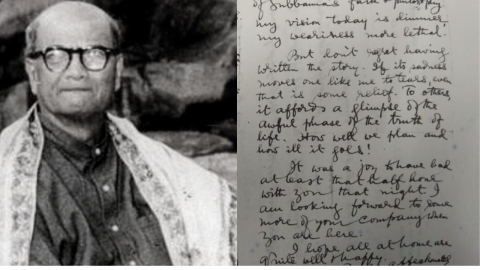 of Subbama's faith & philosophy
my vision today is dimmer,
my weariness more lethal.
But don't regret having
written the story. If its sadness
moves one like me to tears, even
that is some relief. To others,
it affords a glimpse of the
awful phase of the truth of
life. How well we plan and
how ill it goes!
It was a joy to have had
at least that half hour
with you that night. I
am looking forward to some
more of your company when
you are here.
I hope all at home are
quite well & happy.
affectionately